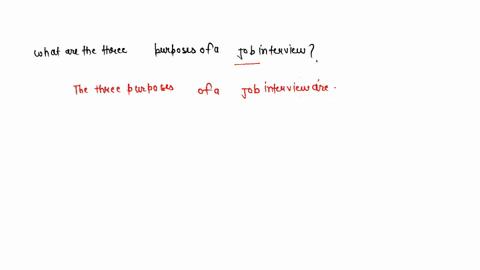 What are the three purposes of a job interview?
The three purposes of a job interview are.